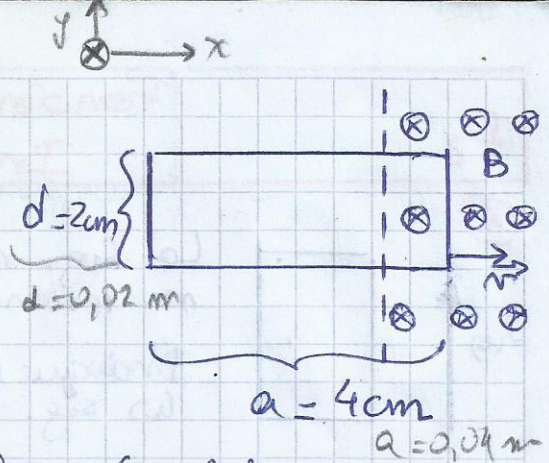 y
x
B
d=2cm
d=0,02 m
v
a = 4cm
a=0,04 m